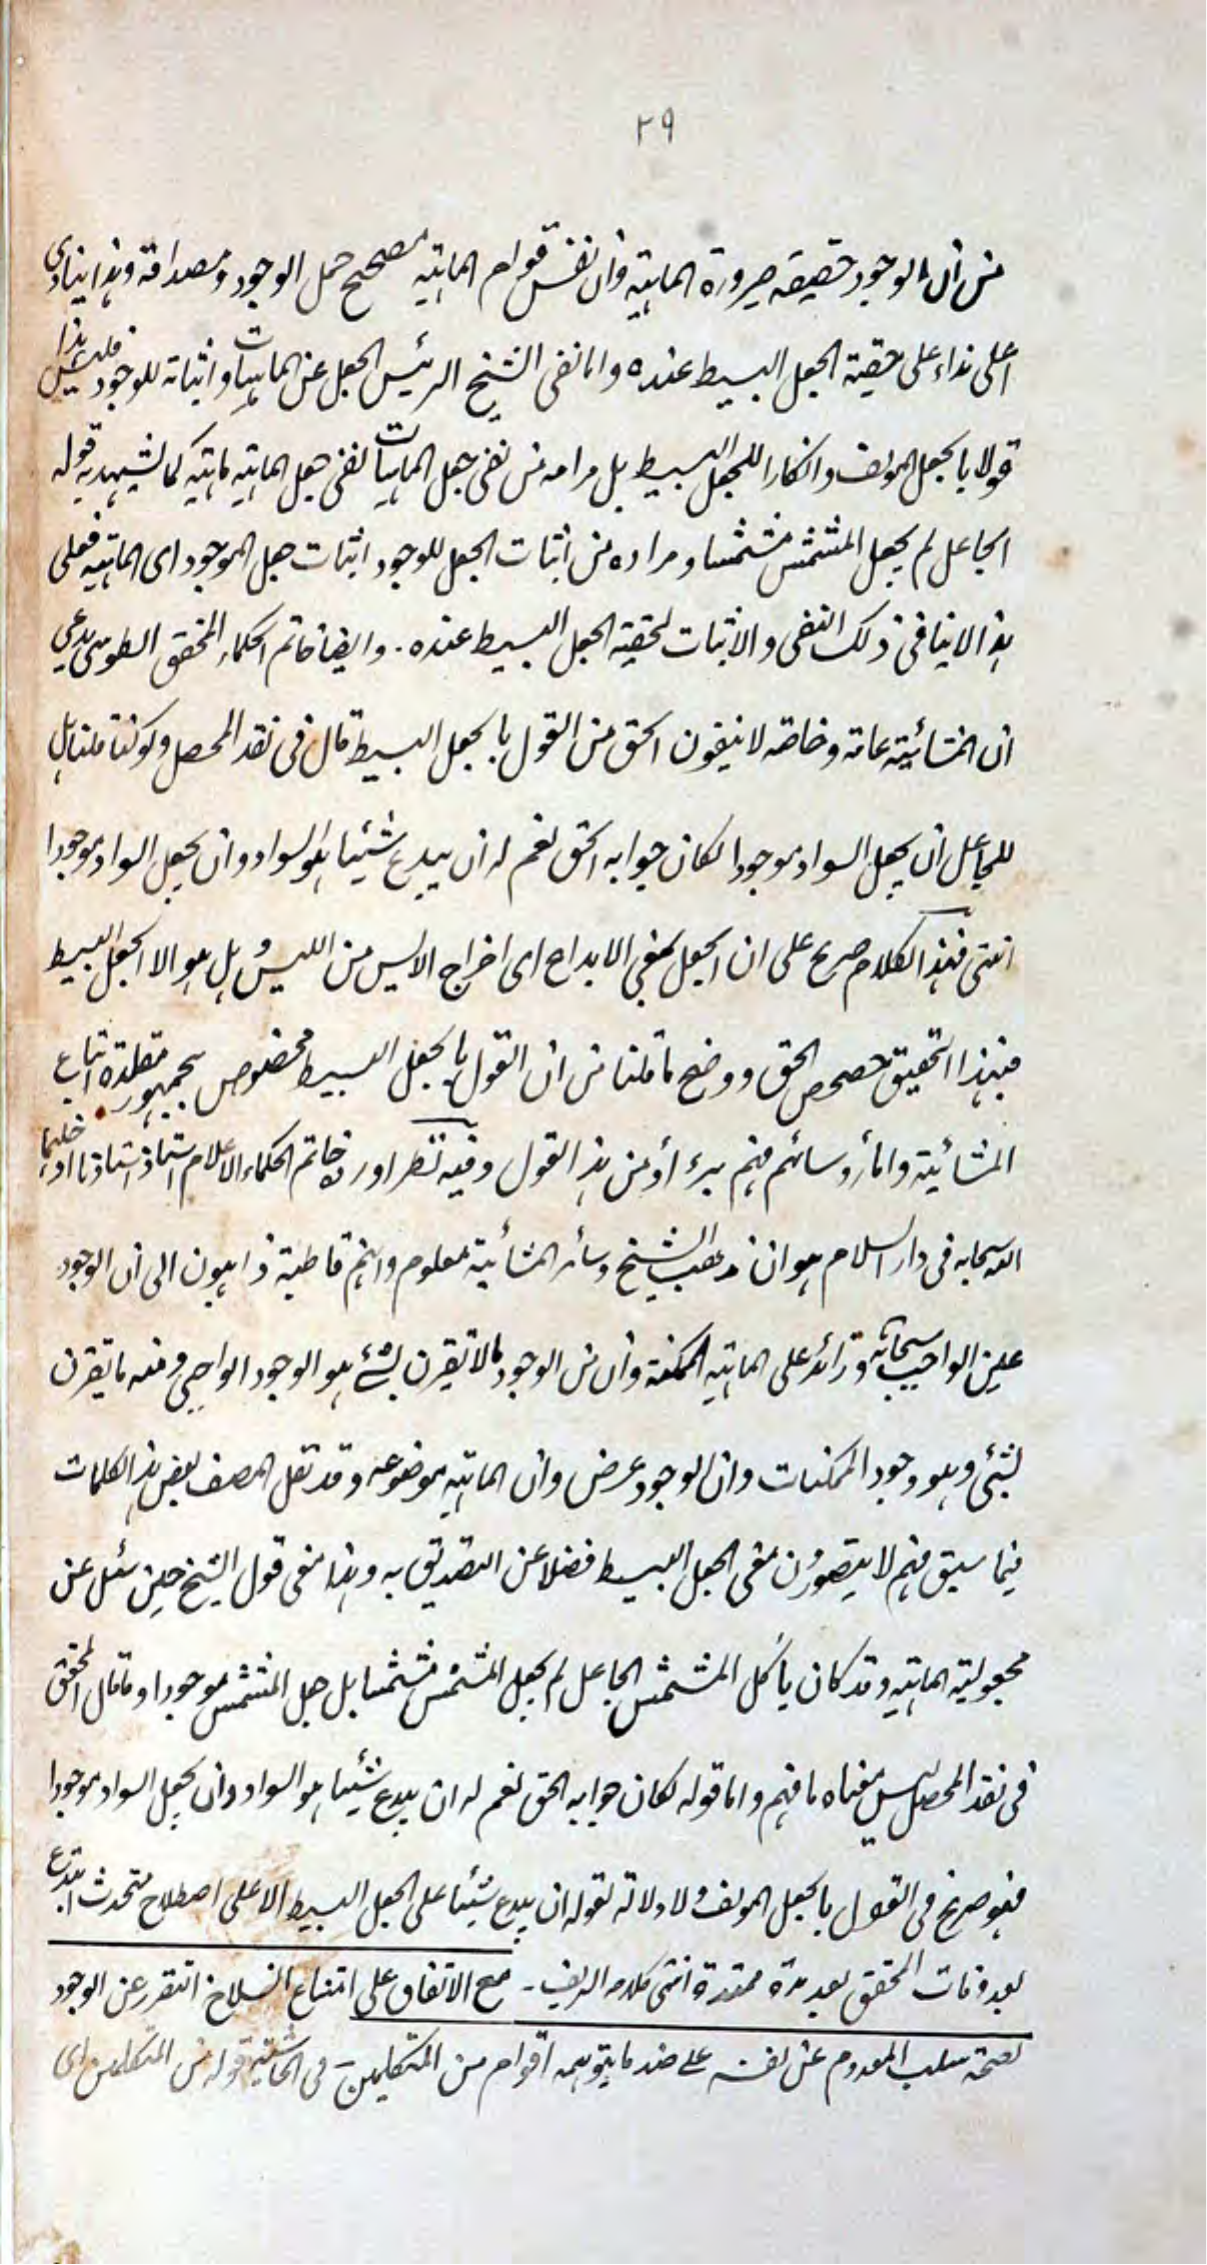 ٢٩
من ان الوجود حقيقة صيرورة الماهية وان نفس قوام الماهية مصحح حمل الوجود ومصداقه وهذا ينادى
اعلى نداء على حقية الجعل البسيط عنده واما نفى الشيخ الرئيس الجعل عن الماهيات واثباته للوجود فليس هذا
قولا بالجعل المولف وانكارا للجعل البسيط بل مرامه من نفى جعل الماهيات نفى جعل الماهية ماهية كما يشهد به قوله
الجاعل لم يجعل المشمش مشمشا ومراده من اثبات الجعل للوجود اثبات جعل الموجود اى الماهية فعلى
هذا لا ينافى ذلك النفى والاثبات لحقية الجعل البسيط عنده. وايضا خاتم الحكماء المحقق الطوسى يدعى
ان المشائية عامة وخاصة لا ينفون الحق من القول بالجعل البسيط قال فى نقد المحصل ولو كنا قلنا هل
للجاعل ان يجعل السواد موجودا لكان جوابه الحق نعم له ان يبدع شيئا هو السواد وان يجعل السواد موجودا
انتهى فهذا الكلام صريح على ان الجعل بمعنى الابداع اى اخراج الايس من الليس وهل هو الا الجعل البسيط
فبهذا التحقيق حصحص الحق ووضح ما قلنا من ان القول بالجعل البسيط مخصوص بجمهور مقلدة اتباع
المشائية واما رؤسائهم فهم برءاؤ من هذا القول وفيه نظر اورده خاتم الحكماء الاعلام استاذ استاذنا ادخلهما
الله سبحانه فى دار السلام هو ان مذهب الشيخ وسائر المشائية معلوم وانهم قاطبة ذاهبون الى ان الوجود
عين الواجب سبحانه وزائد على الماهية الممكنة وان من الوجود ما لا يقترن بشئ هو الوجود الواجبى ومنه ما يقترن
بشئ وهو وجود الممكنات وان الوجود عرض وان الماهية موضوعه وقد نقل المصنف بعض هذه الكلمات
فيما سبق فهم لا يتصورون معنى الجعل البسيط فضلا عن التصديق به وهذا معنى قول الشيخ حين سئل عن
مجعولية الماهية وقد كان يأكل المشمش الجاعل لم يجعل المشمش مشمشا بل جعل المشمش موجودا وما قال المحقق
فى نقد المحصل ليس معناه ما فهم واما قوله لكان جوابه الحق نعم له ان يبدع شيئا هو السواد وان يجعل السواد موجودا
فهو صريح فى القول بالجعل المولف ولا دلالة لقوله ان يبدع شيئا على الجعل البسيط الا على اصطلاح مستحدث ابتدع
بعد وفات المحقق بعد مدة ممتدة انتهى كلامه الشريف - مع الاتفاق على امتناع انسلاخ التقرر عن الوجود
لصحة سلب المعدوم عن نفسه على ضد ما يتوهمه اقوام من المتكلمين - فى الحاشية قوله من المتكلمين اى